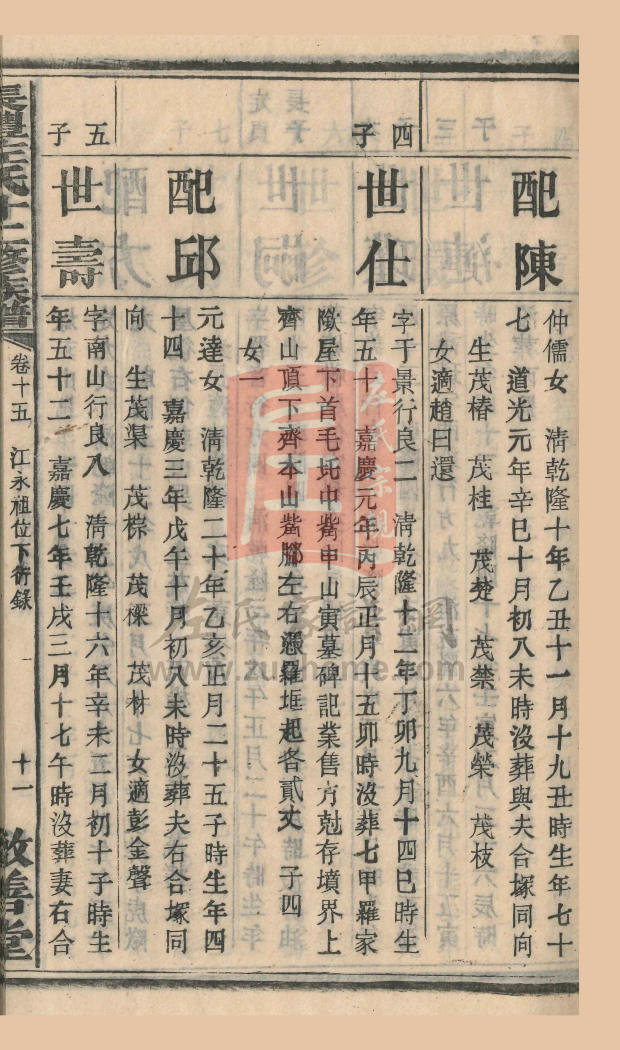 配陳
仲儒女　清乾隆十年乙丑十一月十九丑時生年七十
七　道光元年辛巳十月初八未時沒葬與夫合塚同向
生茂椿　茂桂　茂楚　茂禁　茂榮　茂枝
女適趙曰還
四子
世仕
字于景行良二　清乾隆十二年丁卯九月十四巳時生
年五十　嘉慶元年丙辰正月十五卯時沒葬七甲羅家
屋下首毛坵中觜申山寅墓碑記業售方尅存墳界上
齊山頂下齊本山觜腳左右憑羅堆起各貳丈　子四
女一
配邱
元達女　清乾隆二十年乙亥正月二十五子時生年四
十四　嘉慶三年戊午十月初八未時沒葬夫右合塚同
向　生茂渠　茂棕　茂樑　茂材　女適彭金聲
五子
世壽
字南山行良八　清乾隆十六年辛未二月初十子時生
年五十二　嘉慶七年壬戌三月十七午時沒葬妻右合
長豐左氏十二修族譜
卷十五　江永祖位下衍錄
十一
敦善堂
左氏宗親
左氏家譜網
www.zupuhome.com